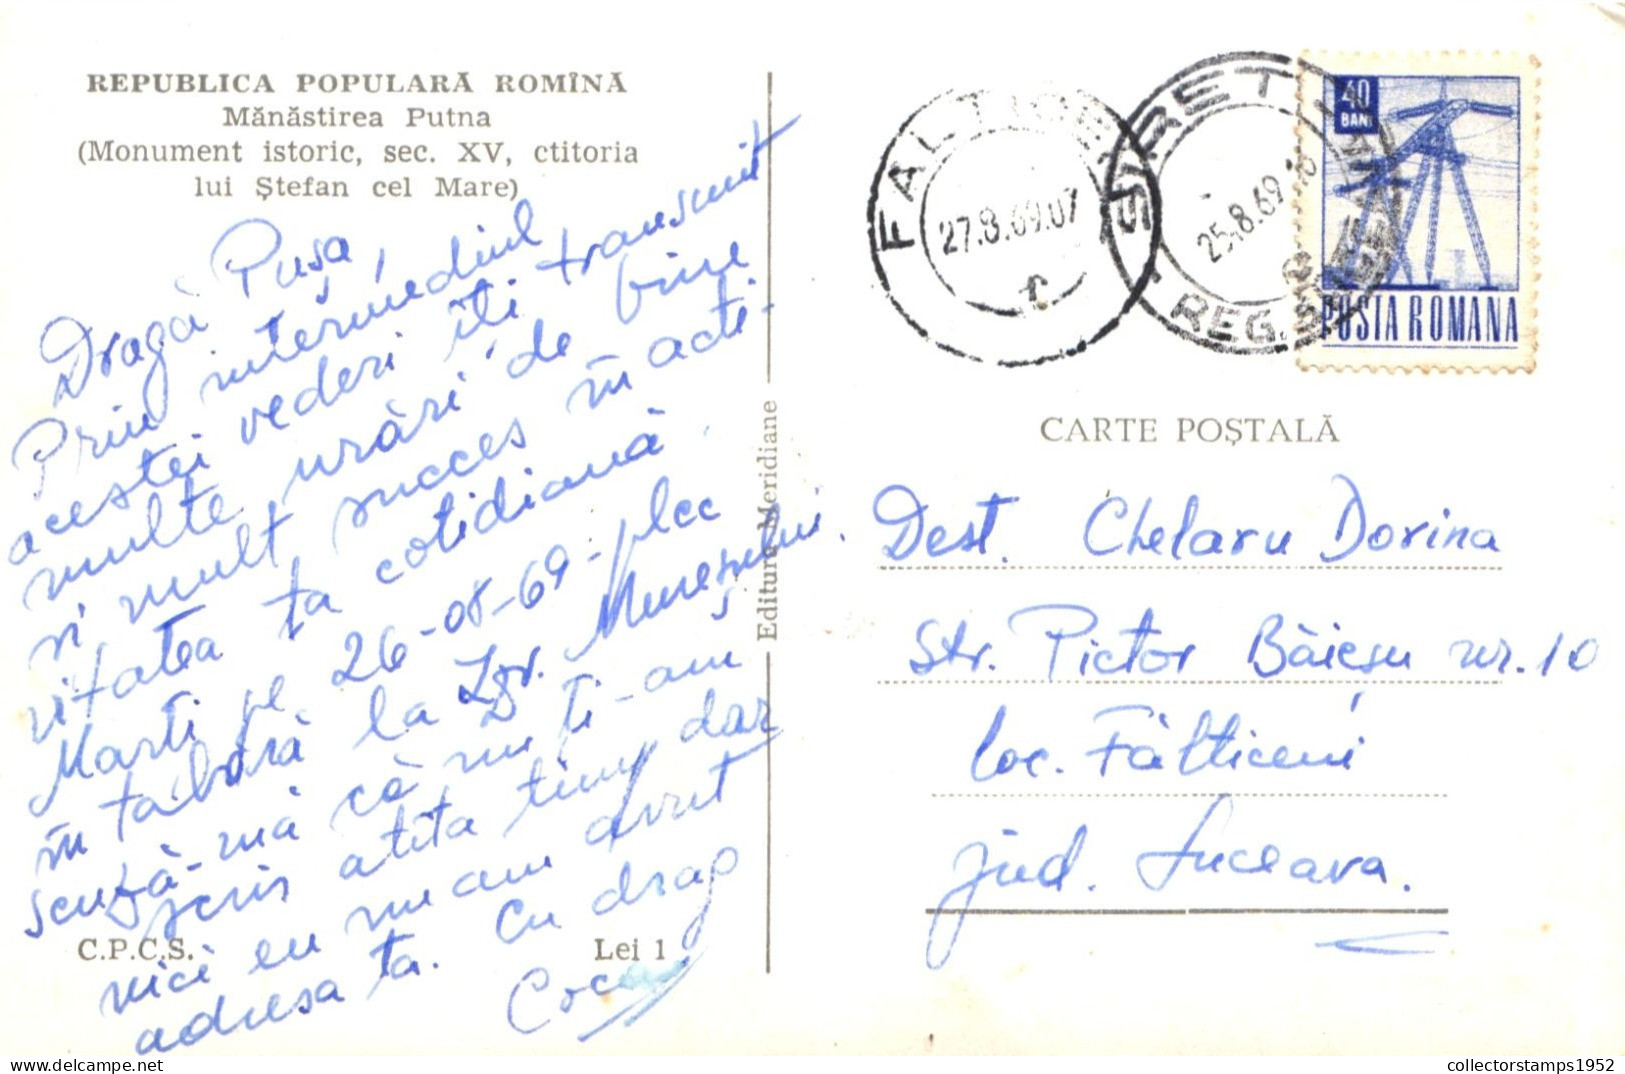 REPUBLICA POPULARĂ ROMÎNĂ
Mănăstirea Putna
(Monument istoric, sec. XV, ctitoria
lui Ștefan cel Mare)
Dragă Pușa,
Prin intermediul
acestei vederi îti transmit
multe urări de bine
si mult succes în acti-
vitatea ta cotidiană.
Marti pe 26-08-69-plec
în tabără la Izv. Mureșului.
scuză-mă că nu ți-am
scris atîta timp dar
nici eu nu am avut
adresa ta. Cu drag
Coca
C.P.C.S.
Lei 1
Editura Meridiane
FALTICENI
27.8.69.07
SIRET
25.8.69
REG.
40
BANI
POSTA ROMANA
CARTE POȘTALĂ
Dest. Chelaru Dorina
Str. Pictor Băieșu nr. 10
loc. Fălticeni
jud. Suceava.
collectorstamps1952